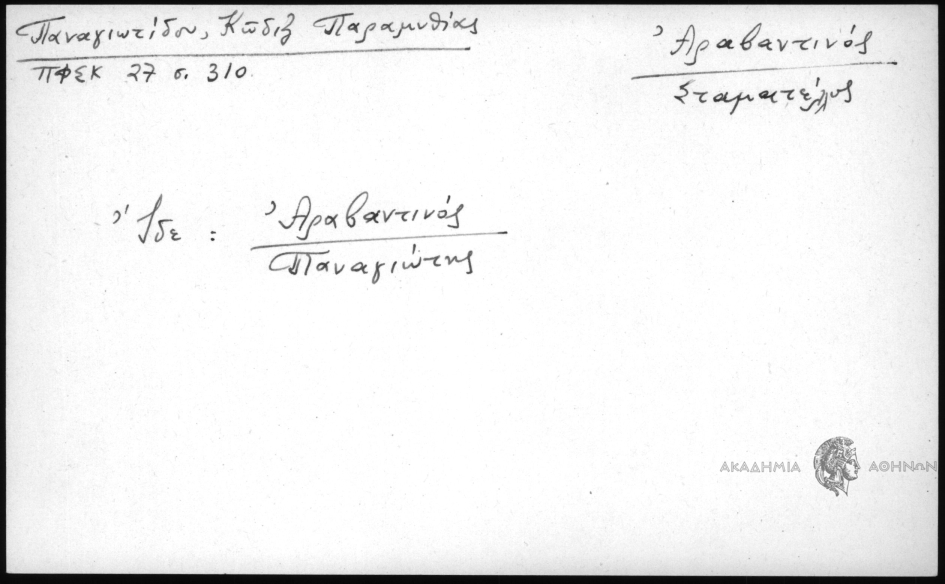 Παναγιωτίδου, Κῶδιξ Παραμυθίας
ΠΦΣΚ 27 σ. 310.
Ἀραβαντινός
Σταματέλλος
Ἴδε : Ἀραβαντινός
Παναγιώτης
ΑΚΑΔΗΜΙΑ ΑΘΗΝΩΝ